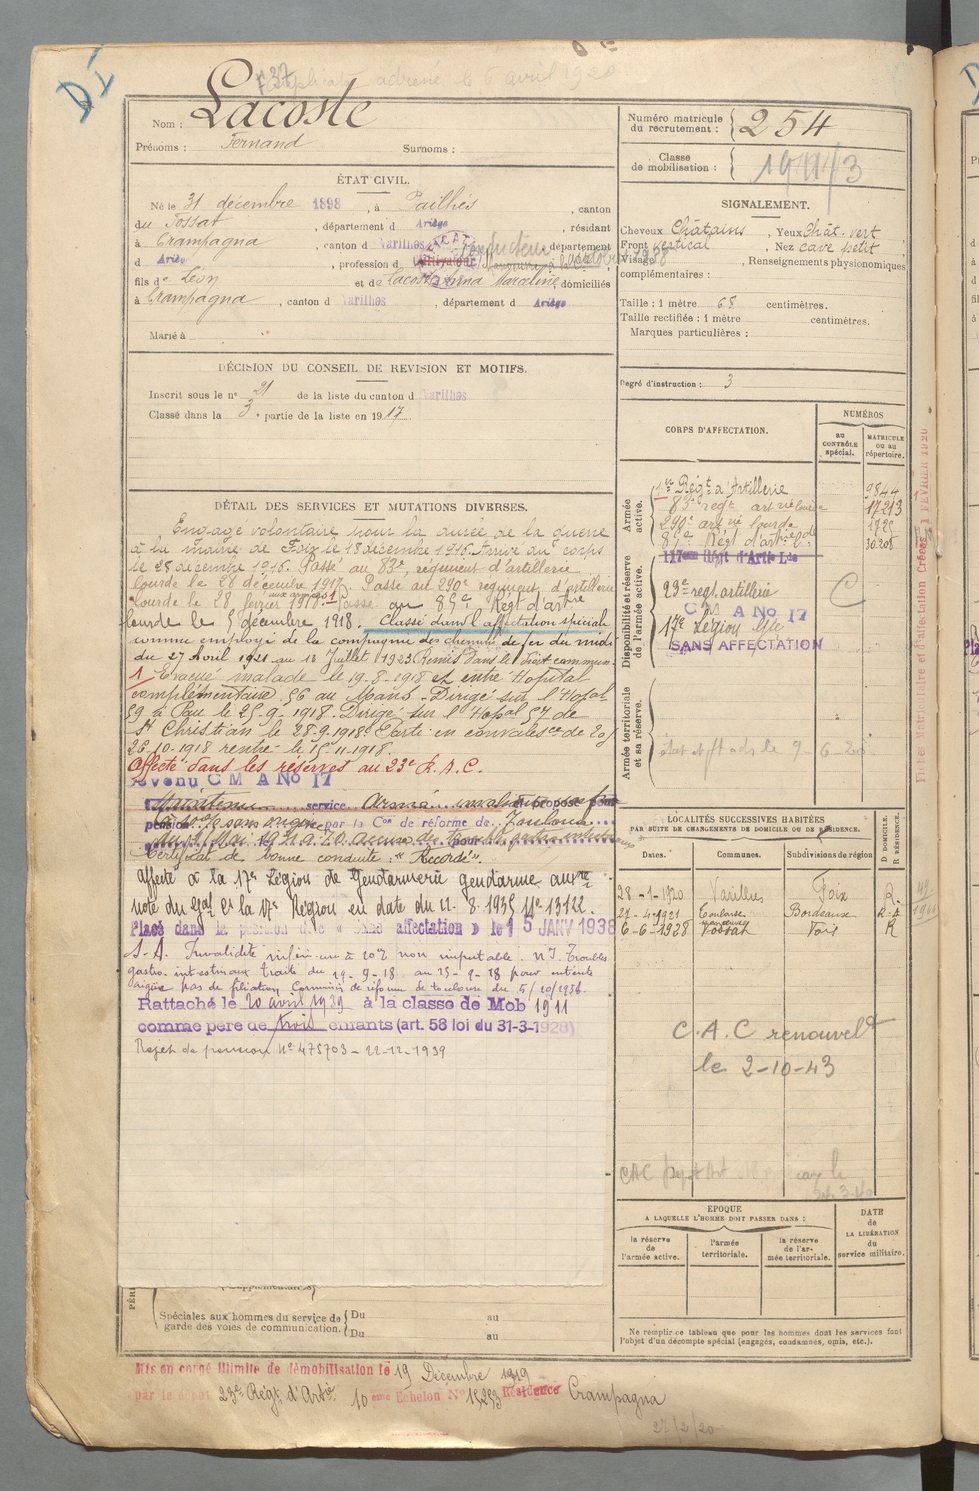 Duplicata adressé le 6 avril 1920
Nom : Lacoste
Prénoms : Fernand Surnoms :
ÉTAT CIVIL.
Né le 31 décembre 1898, à Pailhès, canton
du Fossat, département d Ariège, résidant
à Crampagna, canton d Varilhes, département
d Ariège, profession d Cultivateur
fils de Léon et de Lacoste Irma Marceline domiciliés
à Crampagna, canton d Varilhes, département d Ariège
Marié à
DÉCISION DU CONSEIL DE REVISION ET MOTIFS.
Inscrit sous le n° 21 de la liste du canton d Varilhes
Classé dans la 3e partie de la liste en 1917.
DÉTAIL DES SERVICES ET MUTATIONS DIVERSES.
Engagé volontaire pour la durée de la guerre
à la mairie de Foix le 18 décembre 1916. Arrivé au corps
le 28 décembre 1916. Passé au 83e régiment d'artillerie
lourde le 28 décembre 1917. Passé au 290e régiment d'artillerie
lourde le 28 février 1918. aux armées 1 Passé au 85e Régt d'artie
lourde le 5 décembre 1918. Classé dans l'affectation spéciale
comme employé de la compagnie des chemins de fer du midi
du 27 Avril 1921 au 18 Juillet 1923 Remis dans le droit commun
1/ Evacué malade le 19-8-1918 et entré Hôpital
complémentaire 56 au Mans - Dirigé sur l'Hopal
59 à Pau le 25-9-1918. Dirigé sur l'Hopal 57 de
St Christian le 28-9-1918. Parti en convalesce de 20 j
26-10-1918 rentré le 15-11-1918.
Affecté dans les réserves au 23e R.A.C.
Devenu C M A No 17
Maintenu service Armé invalidité proposé pour
pension par la Con de réforme de Toulouse
Certificat de bonne conduite : "Accordé".
Affecté à la 17e Légion de Gendarmerie gendarme auxre
note du Gal Ct la 17e Région en date du 8-1935 No 13122.
Placé dans la position dite « Sans affectation » le 15 JANV 1938
S.A. Invalidité inférieure à 10% non imputable. N I. Troubles
gastro. intestinaux traité du 19-9-18 au 25-9-18 pour entérite
aigüe pas de filiation Commission de réforme de Toulouse du 5/10/1938.
Rattaché le 20 avril 1939 à la classe de Mob 1911
comme père de trois enfants (art. 58 loi du 31-3-1928)
Rejet de pension No 475703 - 22-12-1939
Spéciales aux hommes du service de garde des voies de communication. Du au
Du au
Mis en congé illimité de démobilisation le 19 Décembre 1919
par le dépôt 23e Régt d'Artie 10ème Echelon No 15253 Résidence Crampagna
27/2/20
Numéro matricule du recrutement : 254
Classe de mobilisation :
SIGNALEMENT.
Cheveux Châtains, Yeux Chât. vert
Front vertical, Nez cave petit
Visage, Renseignements physionomiques
complémentaires :
Taille : 1 mètre 68 centimètres.
Taille rectifiée : 1 mètre centimètres.
Marques particulières :
Degré d'instruction : 3
CORPS D'AFFECTATION.
NUMÉROS
au CONTRÔLE spécial.
MATRICULE ou au répertoire.
Armée active.
1er Régt d'Artillerie 9844
83e régt art rie lourde 17213
290e art rie lourde 1725
85e Régt d'artie lde 30205
Disponibilité et réserve de l'armée active.
117eme Régt d'Artie Lde
23e regt artillerie C
C M A No 17
17e Légion Gie
SANS AFFECTATION
Armée territoriale et sa réserve.
LOCALITÉS SUCCESSIVES HABITÉES
PAR SUITE DE CHANGEMENTS DE DOMICILE OU DE RÉSIDENCE.
Dates. Communes. Subdivisions de région D DOMICILE. R RÉSIDENCE.
28-1-1920 Varilhes Foix R.
21-4-1921 Toulouse Bordeaux
6-6-1928 Fossat Foix R
C.A.C renouvelé
le 2-10-43
EPOQUE
A LAQUELLE L'HOMME DOIT PASSER DANS :
la réserve de l'armée active.
l'armée territoriale.
la réserve de l'armée territoriale.
DATE de LA LIBÉRATION du service militaire.
Ne remplir ce tableau que pour les hommes dont les services font
l'objet d'un décompte spécial (engagés, condamnés, omis, etc.).